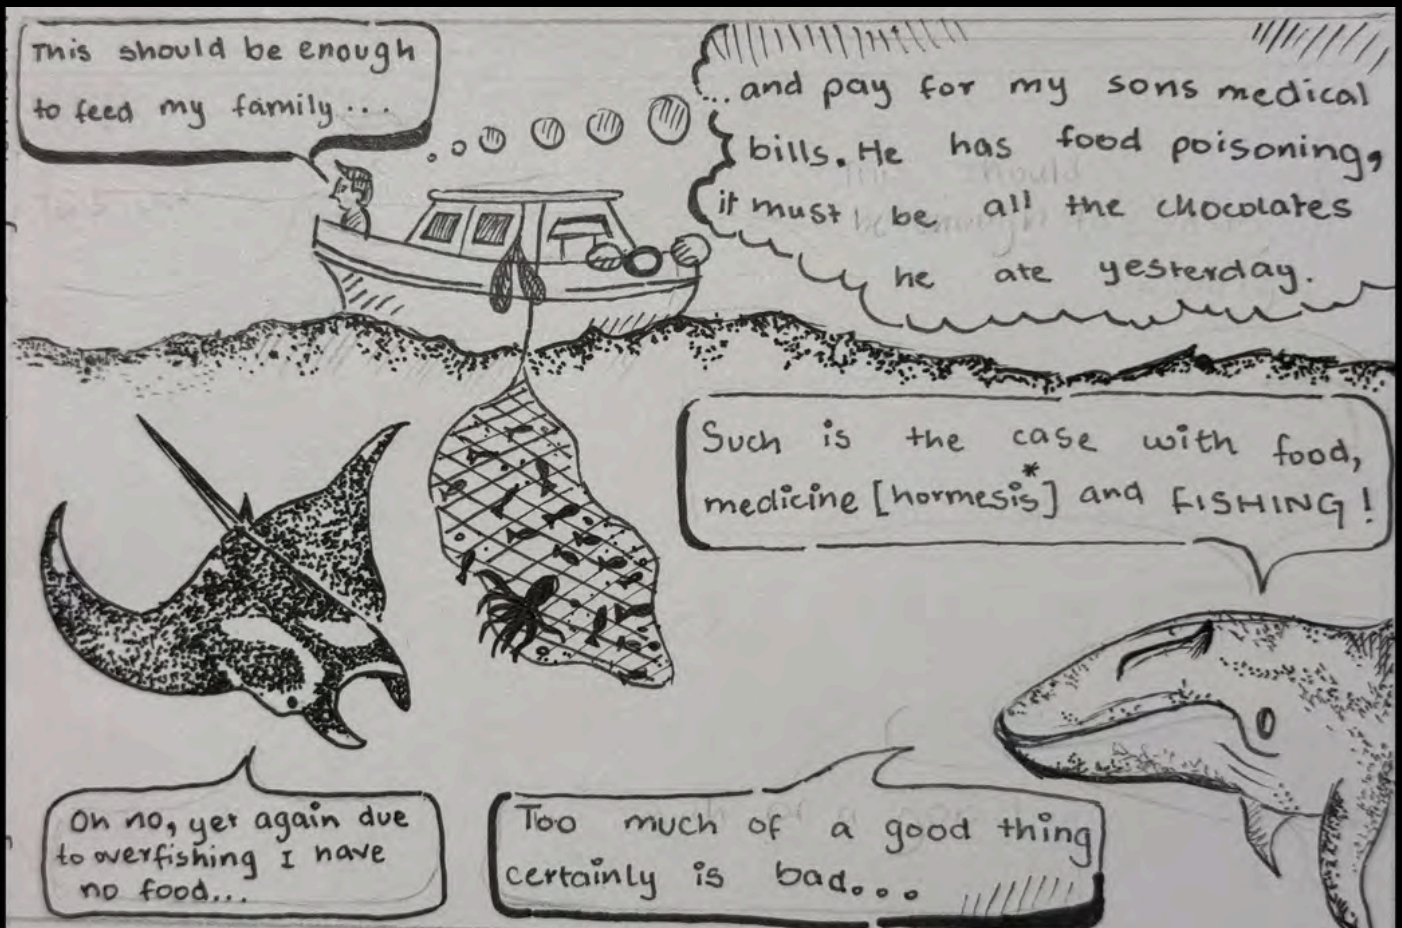 This should be enough
to feed my family...
... and pay for my sons medical
bills. He has food poisoning,
it must be all the chocolates
he ate yesterday.
Such is the case with food,
medicine [hormesis*] and FISHING!
Oh no, yet again due
to overfishing I have
no food...
Too much of a good thing
certainly is bad...